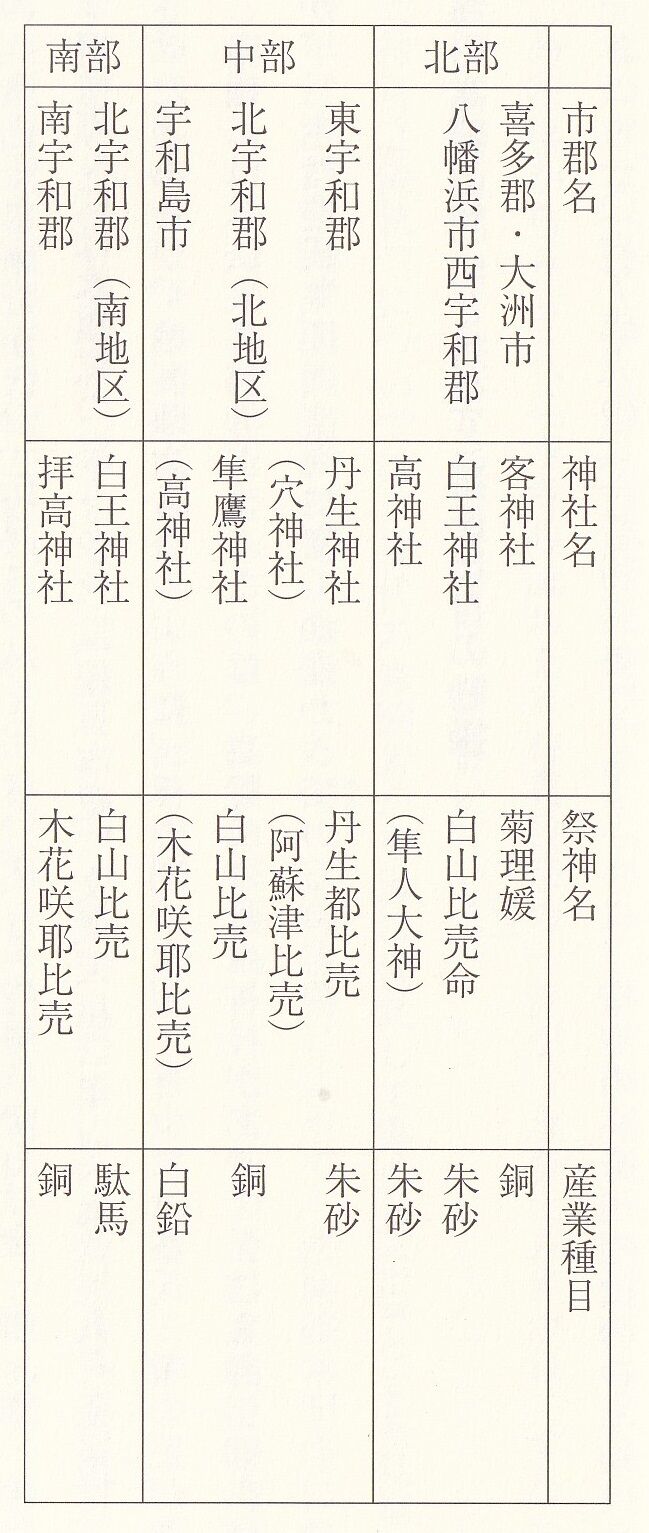 市郡名
神社名
祭神名
産業種目
北部
喜多郡・大洲市
八幡浜市西宇和郡
客神社
白王神社
高神社
菊理媛
白山比売命
（隼人大神）
銅
朱砂
朱砂
中部
東宇和郡
北宇和郡（北地区）
宇和島市
丹生神社
（穴神社）
隼鷹神社
（高神社）
丹生都比売
（阿蘇津比売）
白山比売
（木花咲耶比売）
朱砂
銅
白鉛
南部
北宇和郡（南地区）
南宇和郡
白王神社
拝高神社
白山比売
木花咲耶比売
駄馬
銅